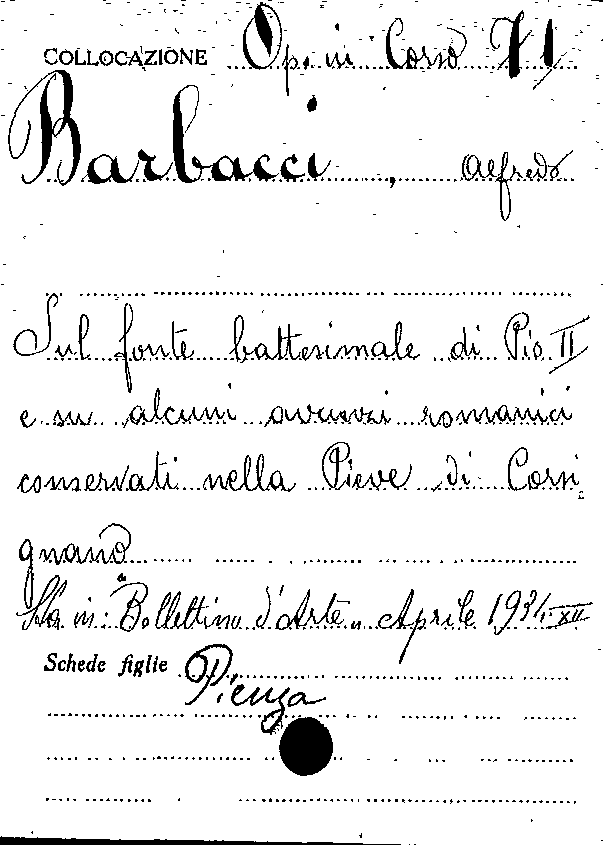 COLLOCAZIONE Op. in Corso 71
Barbacci, Alfredo
Sul fonte battesimale di Pio II
e su alcuni avanzi romanici
conservati nella Pieve di Corsi
gnano
Sta in: "Bollettino d'Arte" Aprile 1934 XII
Schede figlie Pienza